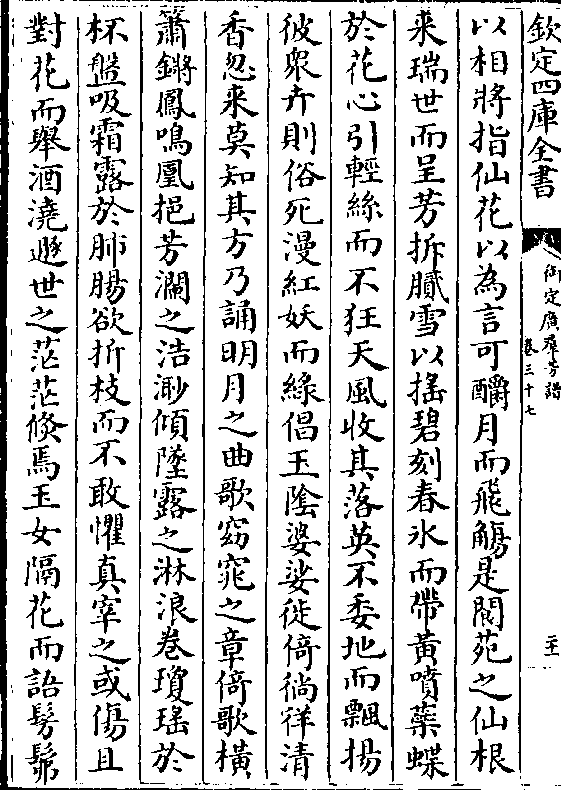 欽定四庫全書
御定廣羣芳譜
卷三十七
以相將指仙花以為言可釂月而飛觴是閬苑之仙根
来瑞世而呈芳拆臘雪以揺碧刻春氷而帶黄噴蘂蝶
於花心引輕絲而不狂天風收其落英不委地而飄揚
彼衆卉則俗死漫紅妖而緑倡玉隂婆娑徙倚徜徉清
香忽来莫知其方乃誦明月之曲歌窈窕之章倚歌横
簫鏘鳳鳴凰挹芳瀾之浩渺傾墜露之淋浪卷瓊瑶於
杯盤吸霜露於肺腸欲折枝而不敢懼真宰之或傷且
對花而舉酒澆遯世之茫茫倐焉玉女隔花而語髣髴